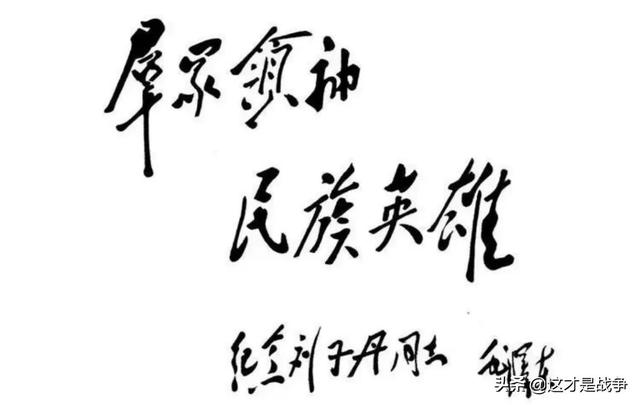 羣众領袖
民族英雄
纪念刘子丹同志 毛泽东
头条 @这才是战争